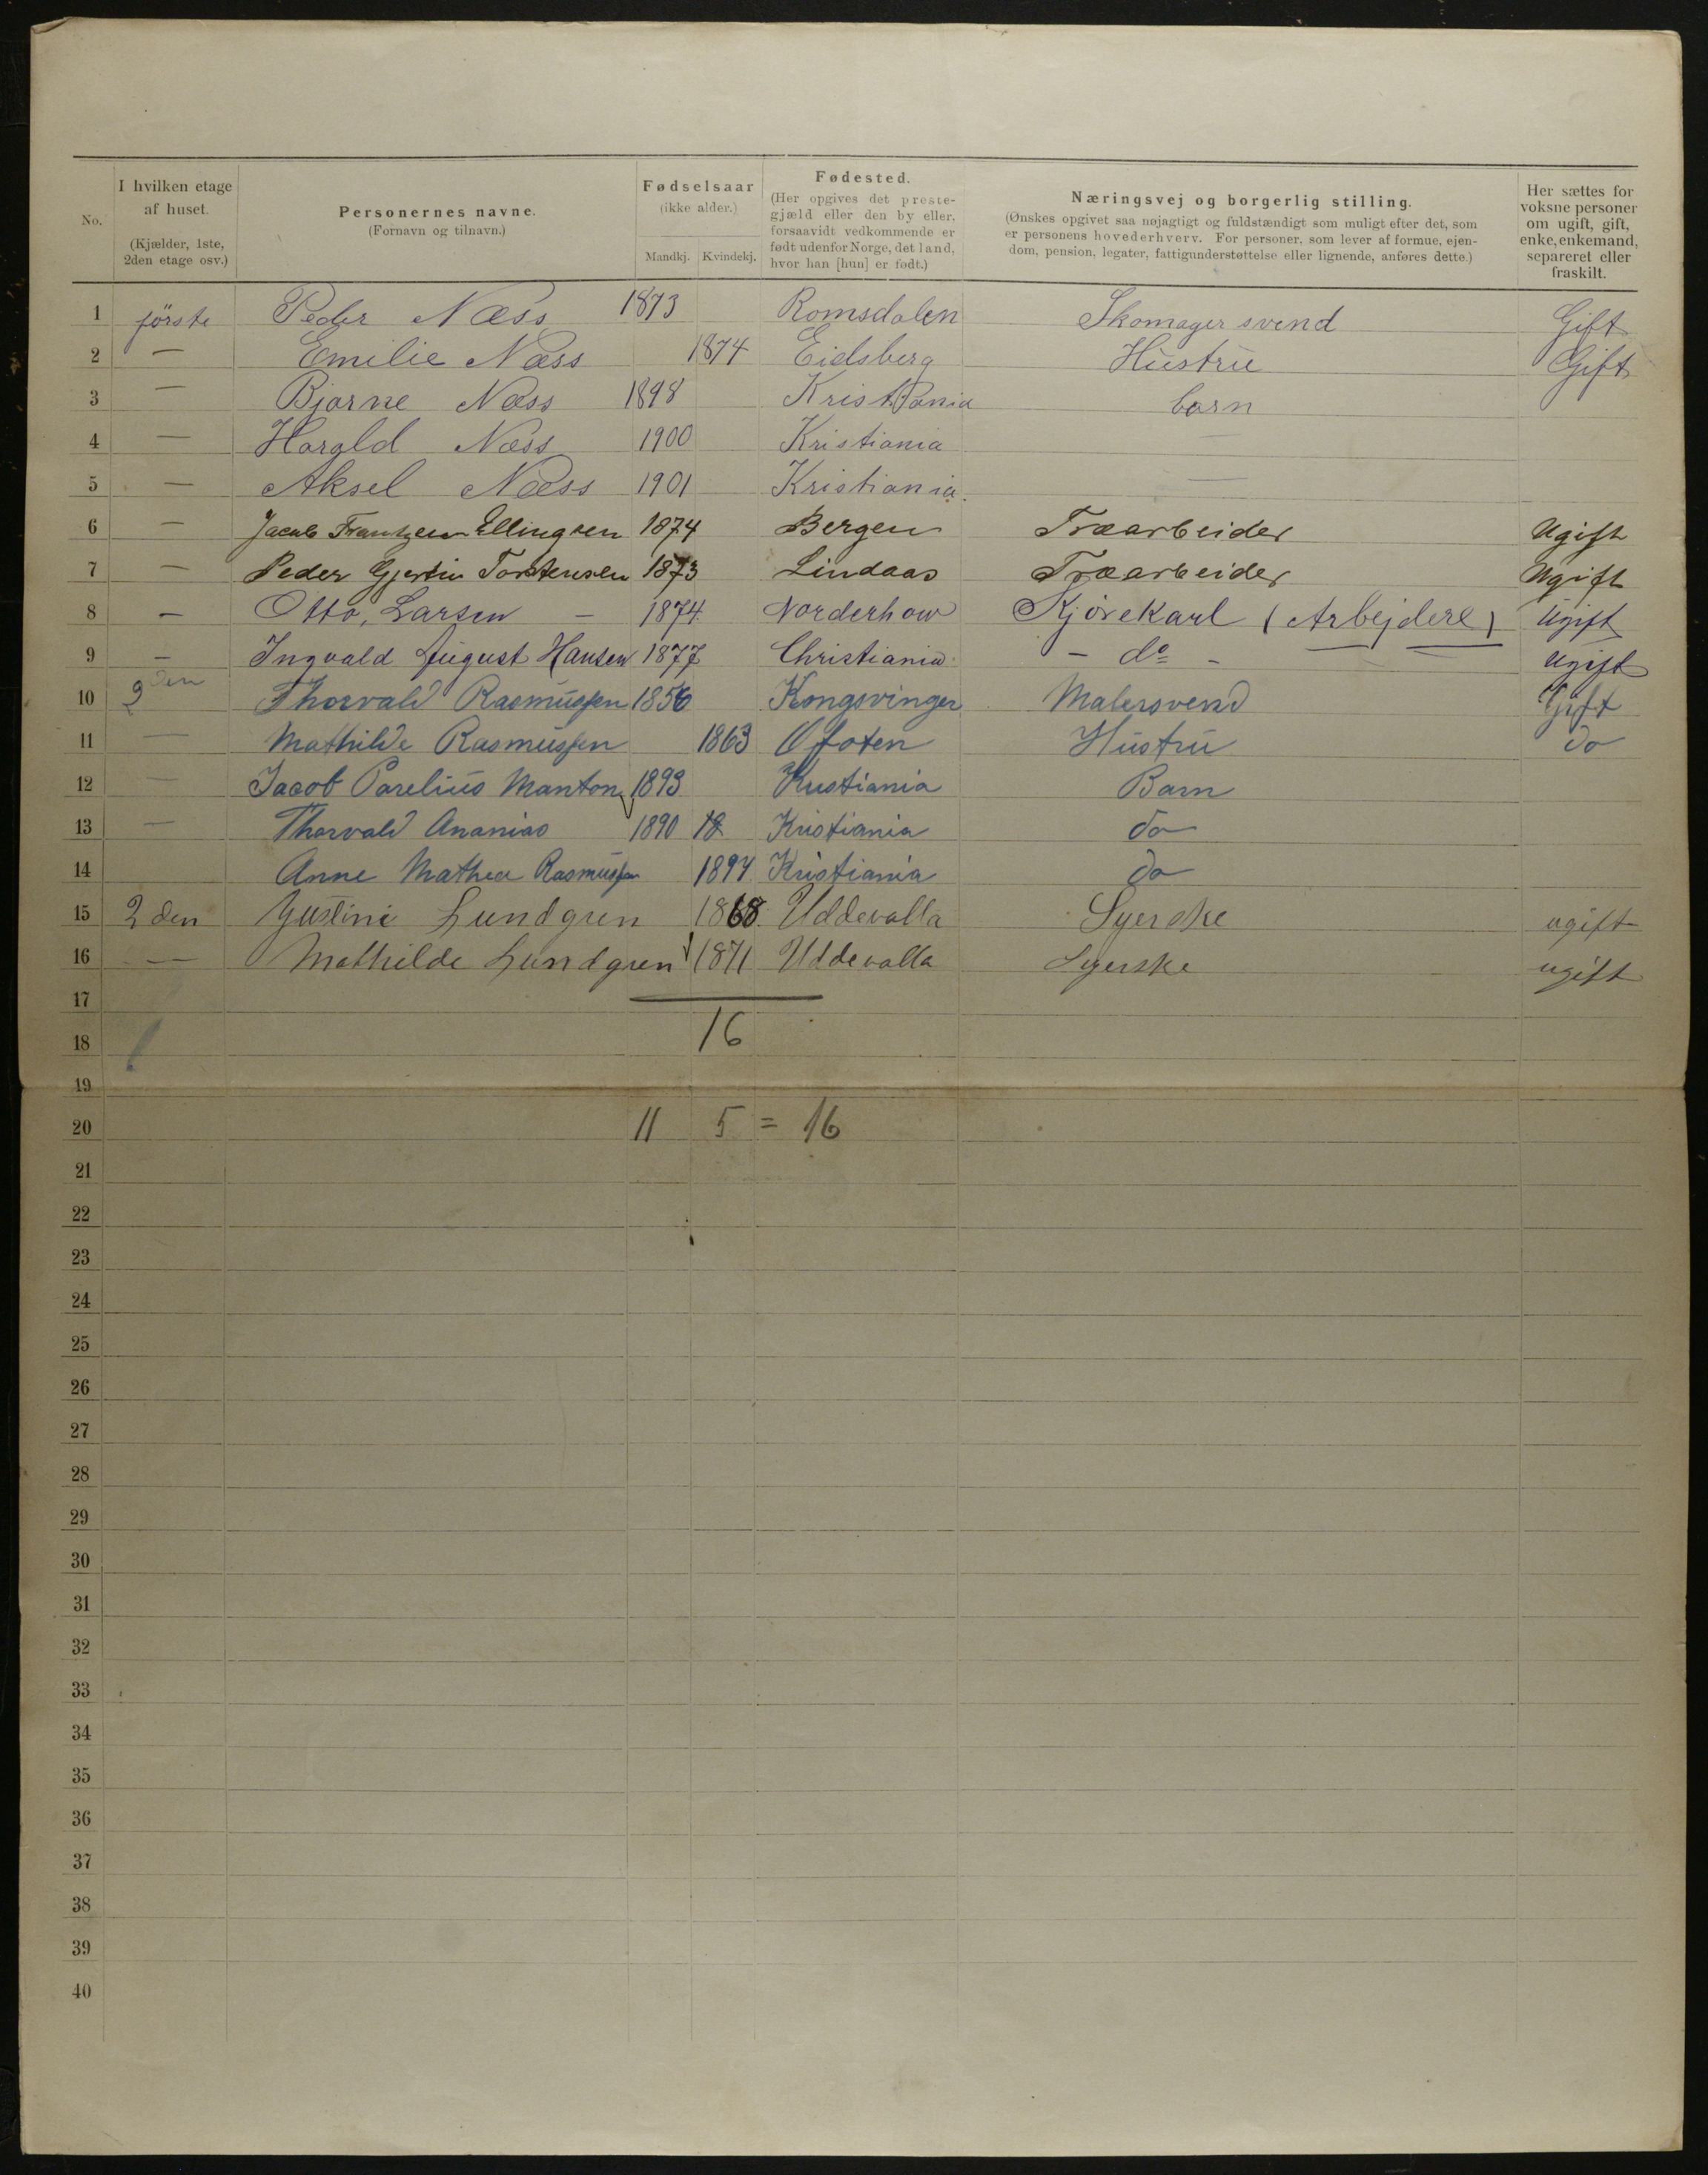 No.
I hvilken etage af huset. (Kjælder, 1ste, 2den etage osv.)
Personernes navne. (Fornavn og tilnavn.)
Fødselsaar (ikke alder.) Mandkj. Kvindekj.
Fødested. (Her opgives det prestegjæld eller den by eller, forsaavidt vedkommende er født udenfor Norge, det land, hvor han [hun] er født.)
Næringsvej og borgerlig stilling. (Ønskes opgivet saa nøjagtigt og fuldstændigt som muligt efter det, som er personens hovederhverv. For personer, som lever af formue, ejendom, pension, legater, fattigunderstøttelse eller lignende, anføres dette.)
Her sættes for voksne personer om ugift, gift, enke, enkemand, separeret eller fraskilt.
1 förste Peder Næss 1873 Romsdalen Skomager svend Gift
2 — Emilie Næss 1874 Eidsberg Hustru Gift
3 — Bjarne Næss 1898 Kristiania barn
4 — Harald Næss 1900 Kristiania
5 — Aksel Næss 1901 Kristiania. —
6 — Jacob Frantzen Ellingsen 1874 Bergen Træarbeider Ugift
7 — Peder Gjertin Torstensen 1873 Lindaas Træarbeider Ugift
8 — Otto, Larsen — 1874 Norderhow Kjørekarl (Arbejdere) Ugift
9 — Ingvald August Hansen 1877 Christiania - do - Ugift
10 2den Thorvald Rasmussen 1856 Kongsvinger Malersvend Gift
11 — Mathilde Rasmussen 1863 Ofoten Hustru do
12 — Jacob Parelius Manton 1893 Kristiania Barn
13 — Thorvald Ananias 1890 18 Kristiania do
14 Anne Mathea Rasmussen 1894 Kristiania do
15 2den Justine Lundgren 1868 Uddevalla Syerske ugift
16 — Mathilde Lundgren 1871 Uddevalla Syerske ugift
17
16
18
19
20 11 5 = 16
21
22
23
24
25
26
27
28
29
30
31
32
33
34
35
36
37
38
39
40